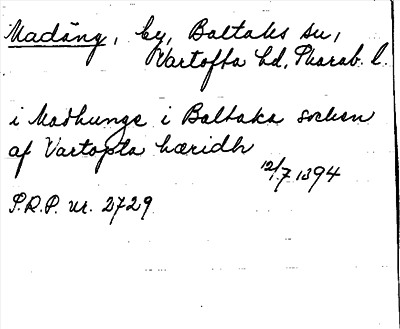 Madäng, by, Baltaks sn,
Vartofta hd, Skarab. l.
i Madhunge i Baltaka sochen
af Vartopta hæridh
12/7 1394
S.R.P. nr. 2729